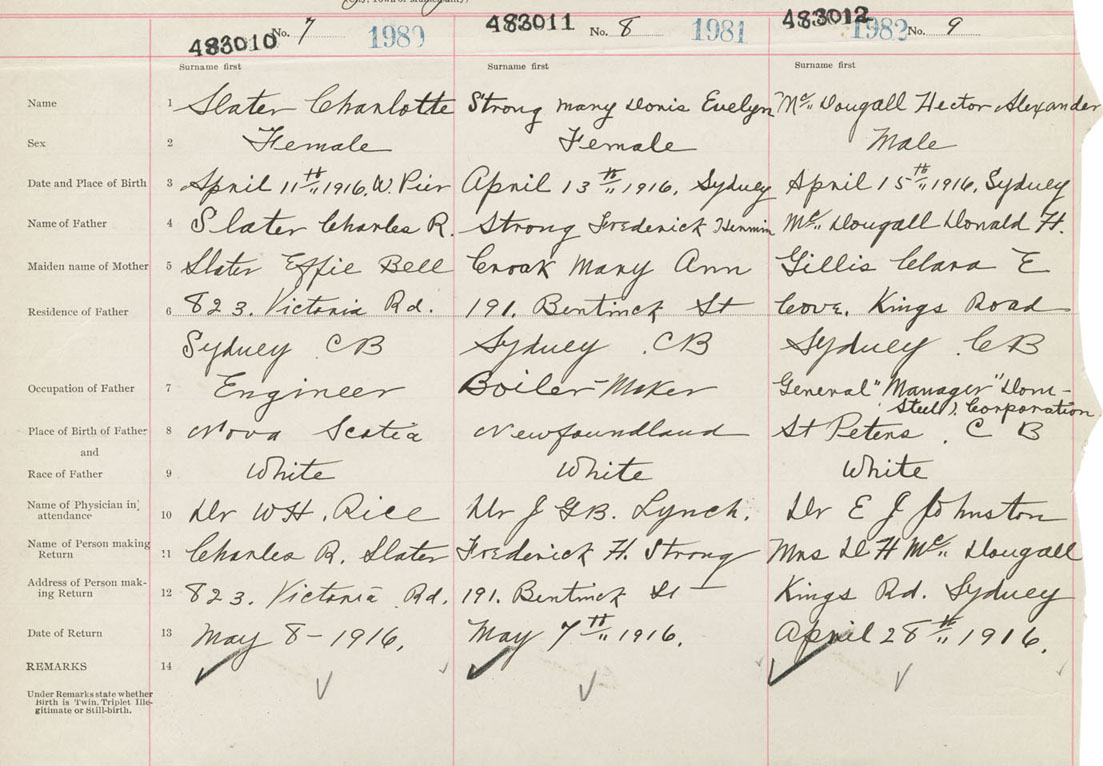 483010 No. 7 1980 483011 No. 8 1981 483012 1982 No. 9
Surname first Surname first Surname first
Name 1 Slater Charlotte Strong Mary Doris Evelyn Mc Dougall Hector Alexander
Sex 2 Female Female Male
Date and Place of Birth 3 April 11th 1916, W. Pier April 13th 1916, Sydney April 15th 1916, Sydney
Name of Father 4 Slater Charles R. Strong Frederick Mc Dougall Donald H.
Maiden name of Mother 5 Slater Effie Bell Croak Mary Ann Gillis Clara E
Residence of Father 6 823. Victoria Rd. 191. Bentinck St Cove. Kings Road
Sydney CB Sydney . CB Sydney . CB
Occupation of Father 7 Engineer Boiler-Maker General "Manager" Dom-
Steel Corporation
Place of Birth of Father 8 Nova Scotia Newfoundland St Peters . C B
and
Race of Father 9 White White White
Name of Physician in attendance 10 Dr W H. Rice Dr J G B. Lynch. Dr E J Johnston
Name of Person making Return 11 Charles R. Slater Frederick H. Strong Mrs D H Mc Dougall
Address of Person mak-ing Return 12 823. Victoria Rd. 191. Bentinck St Kings Rd. Sydney
Date of Return 13 May 8 - 1916. May 7th 1916. April 28th 1916.
REMARKS 14
Under Remarks state whether
Birth is Twin, Triplet Ille-
gitimate or Still-birth.